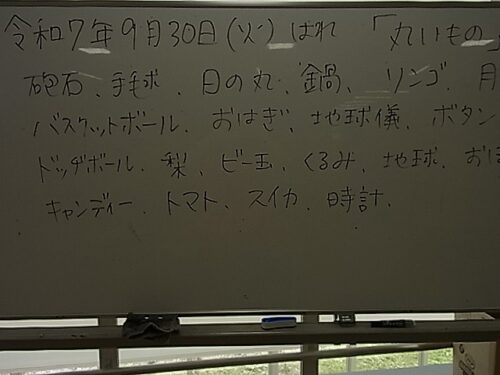 令和7年9月30日(火) はれ 「丸いもの
砲石、手毬、日の丸、鍋、リンゴ、月
バスケットボール、おはぎ、地球儀、ボタン
ドッヂボール、梨、ビー玉、くるみ、地球、お
キャンディー、トマト、スイカ、時計、